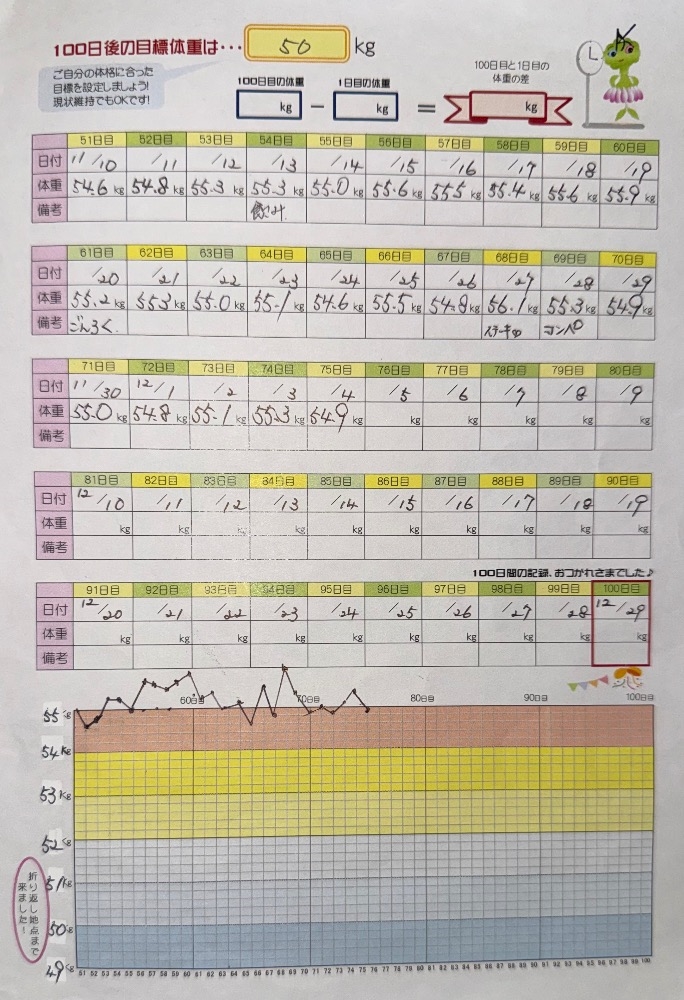 100日後の目標体重は・・・ 50 kg
ご自分の体格に合った
目標を設定しましょう!
現状維持でもOKです!
100日目の体重 kg − 1日目の体重 kg = 100日目と1日目の
体重の差 kg
51日目 52日目 53日目 54日目 55日目 56日目 57日目 58日目 59日目 60日目
日付 11/10 /11 /12 /13 /14 /15 /16 /17 /18 /19
体重 54.6kg 54.8kg 55.3kg 55.3kg 55.0kg 55.6kg 555kg 55.4kg 55.6kg 55.9kg
備考 飲み
61日目 62日目 63日目 64日目 65日目 66日目 67日目 68日目 69日目 70日目
日付 /20 /21 /22 /23 /24 /25 /26 /27 /28 /29
体重 55.2kg 553kg 55.0kg 55.1kg 54.6kg 55.5kg 54.8kg 56.1kg 55.3kg 54.9kg
備考 ごんろく ステーキ コンペ
71日目 72日目 73日目 74日目 75日目 76日目 77日目 78日目 79日目 80日目
日付 11/30 12/1 /2 /3 /4 /5 /6 /7 /8 /9
体重 55.0kg 54.8kg 55.1kg 55.3kg 54.9kg kg kg kg kg kg
備考
81日目 82日目 83日目 84日目 85日目 86日目 87日目 88日目 89日目 90日目
日付 12/10 /11 /12 /13 /14 /15 /16 /17 /18 /19
体重 kg kg kg kg kg kg kg kg kg kg
備考
100日間の記録、おつかれさまでした♪
91日目 92日目 93日目 94日目 95日目 96日目 97日目 98日目 99日目 100日目
日付 12/20 /21 /22 /23 /24 /25 /26 /27 /28 12/29
体重 kg kg kg kg kg kg kg kg kg kg
備考
60日目 70日目 80日目 90日目 100日目
55kg
54kg
53kg
52kg
51kg
50kg
49kg
折り返し地点まで
来ました!
51 52 53 54 55 56 57 58 59 60 61 62 63 64 65 66 67 68 69 70 71 72 73 74 75 76 77 78 79 80 81 82 83 84 85 86 87 88 89 90 91 92 93 94 95 96 97 98 99 100